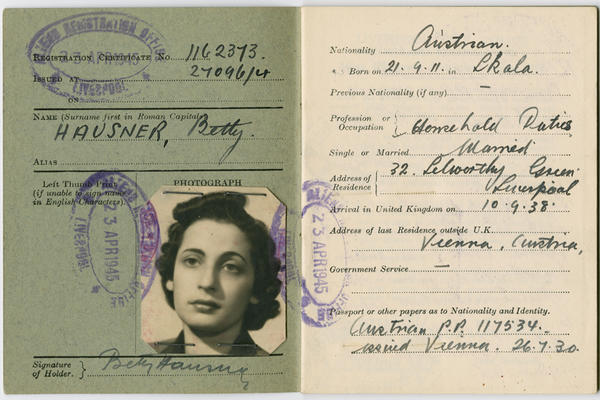 ALIENS REGISTRATION OFFICE
23 APR 1945
LIVERPOOL
REGISTRATION CERTIFICATE No. 1162373.
ISSUED AT
ON
NAME (Surname first in Roman Capitals)
HAUSNER, Betty.
ALIAS
Left Thumb Print
(if unable to sign name
in English Characters).
PHOTOGRAPH
ALIENS REGISTRATION OFFICE
23 APR 1945
LIVERPOOL
Signature
of Holder.
Betty Hausner
Nationality Austrian.
Born on 21.9.11. in Skala.
Previous Nationality (if any) —
Profession or
Occupation
Household Duties
Single or Married Married
Address of
Residence
32. Selworthy Green
Liverpool
Arrival in United Kingdom on 10.9.38.
Address of last Residence outside U.K.
Vienna, Austria,
Government Service —
23 APR 1945
Passport or other papers as to Nationality and Identity.
Austrian P.P. 117534.
issued Vienna. 26.7.30.